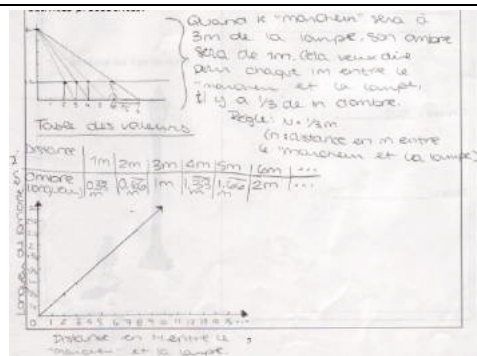 Quand le "marcheur" sera à
3m de la lampe. son ombre
sera de 1m. Cela veux dire
pour chaque 1m entre le
"marcheur et la lampe,
il y a 1/3 de m d'ombre.
Règle: N = 1/3 m
(n = distance en m entre
le "marcheur et la lampe)
Table des valeurs
Distance | 1m | 2m | 3m | 4m | 5m | 6m | ...
Ombre longueur | 0,33 m | 0,66 m | 1m | 1,33 m | 1,66 m | 2m | ...
Longueur de l'ombre en
0 1 2 3 4 5 6 7 8 9 10 11 12 13 14 15 ...
Distance en m entre le
"marcheur" et la lampe.